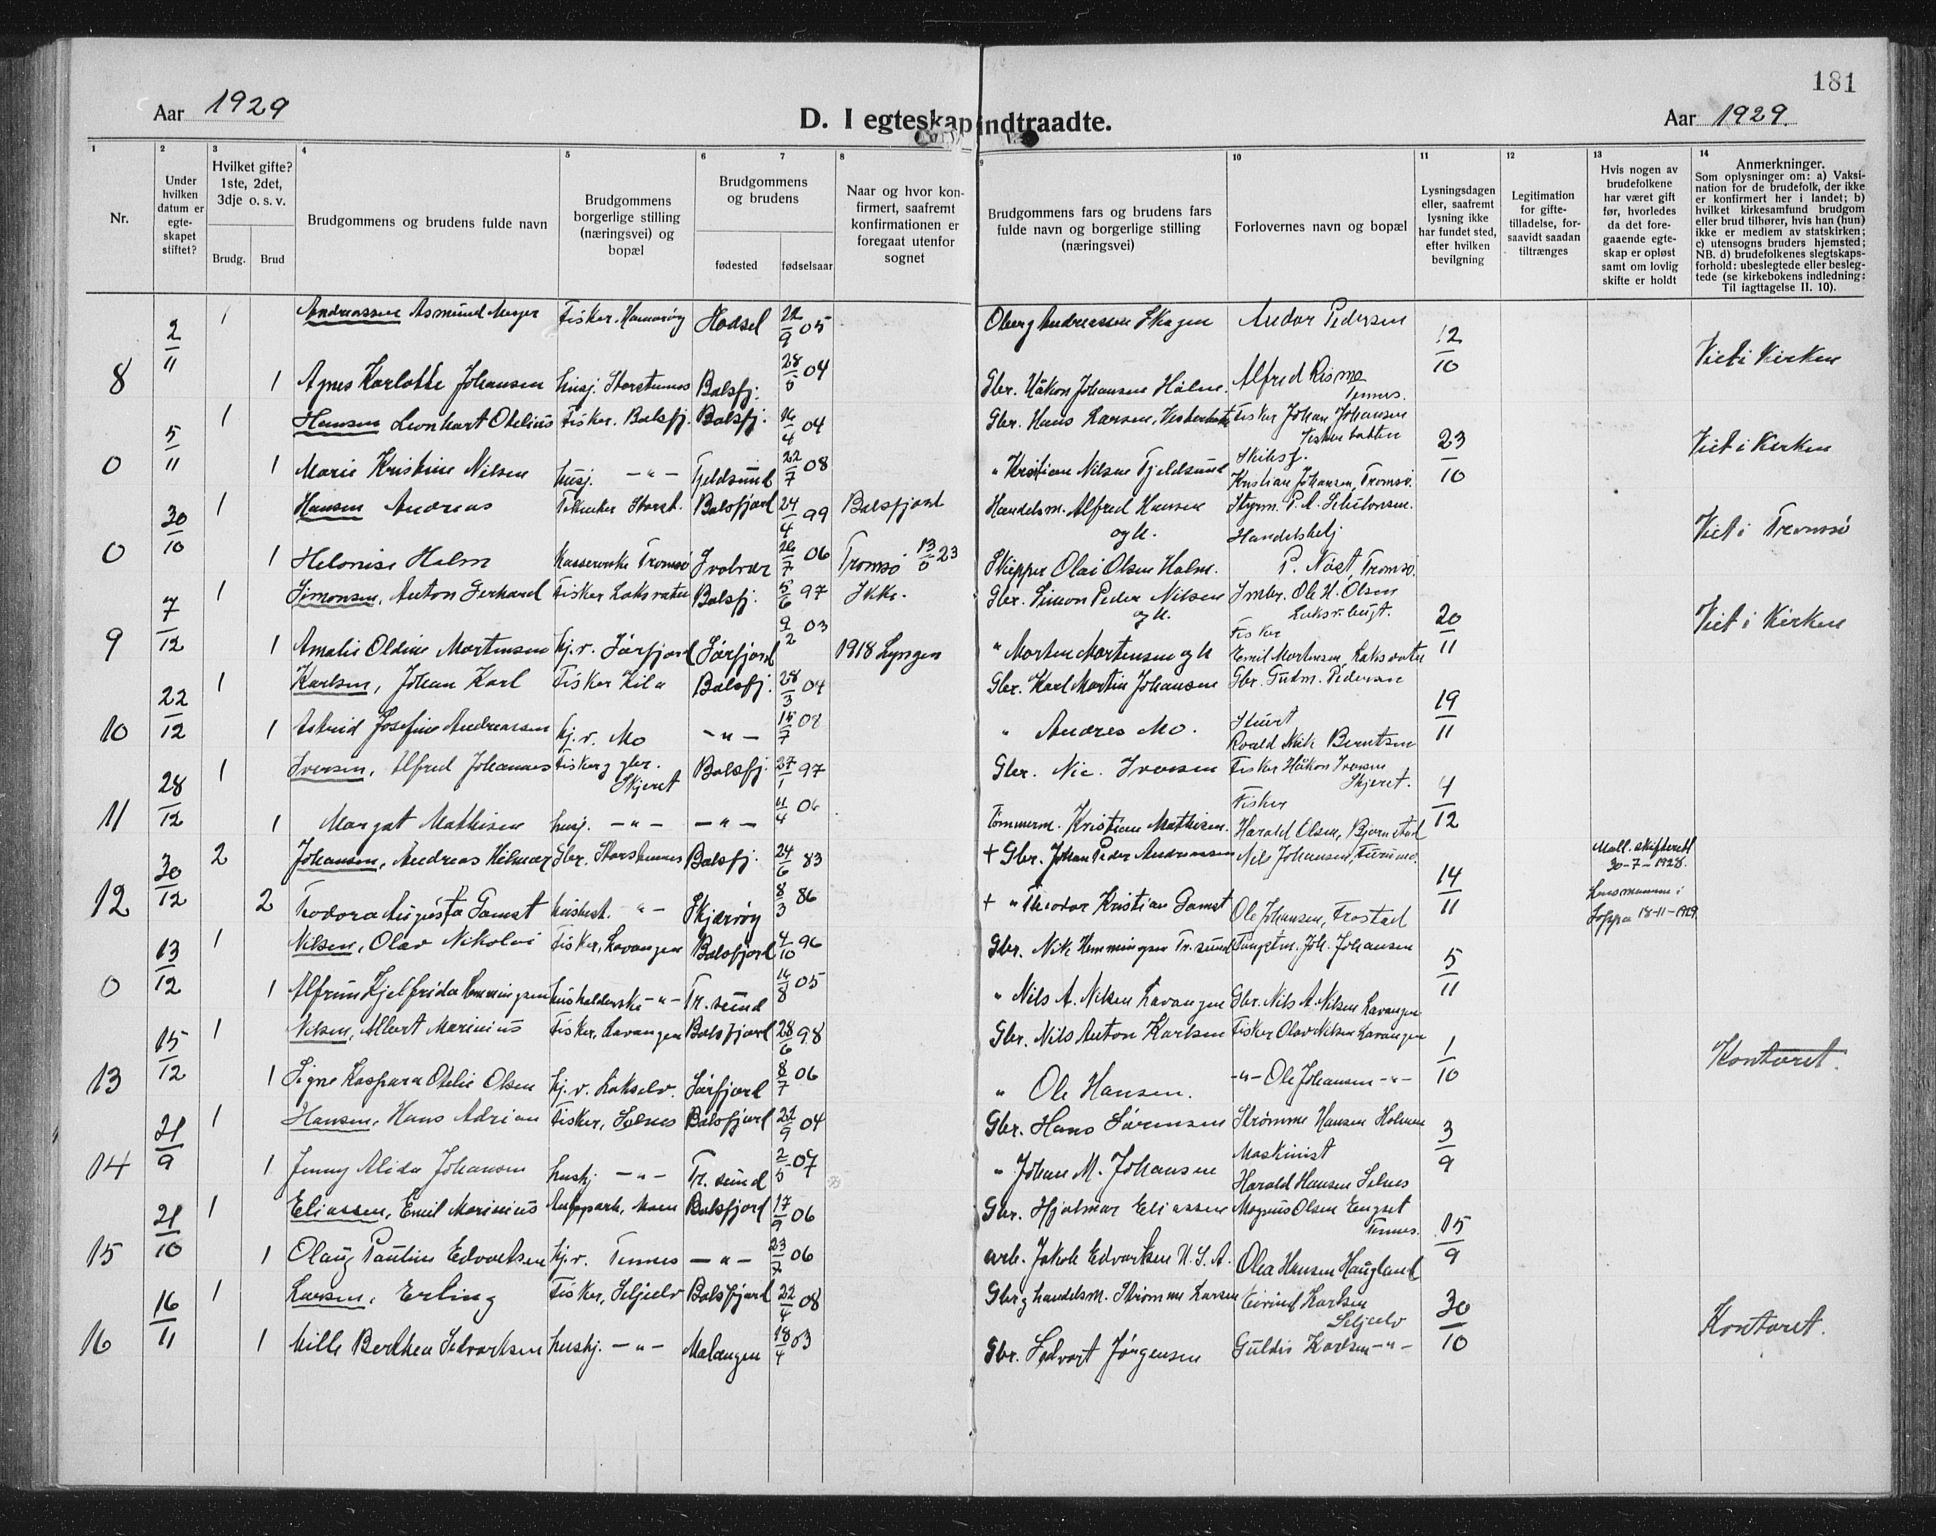 181
Aar 1929
D. I egteskap indtraadte.
Aar 1929.
1 2 3 4 5 6 7 8 9 10 11 12 13 14
Nr.
Under hvilken datum er egte-skapet stiftet?
Hvilket gifte? 1ste, 2det, 3dje o. s. v.
Brudg. Brud
Brudgommens og brudens fulde navn
Brudgommens borgerlige stilling (næringsvei) og bopæl
Brudgommens og brudens
fødested fødselsaar
Naar og hvor kon-firmert, saafremt konfirmationen er foregaat utenfor sognet
Brudgommens fars og brudens fars fulde navn og borgerlige stilling (næringsvei)
Forlovernes navn og bopæl
Lysningsdagen eller, saafremt lysning ikke har fundet sted, efter hvilken bevilgning
Legitimation for gifte-tilladelse, for-saavidt saadan tiltrænges
Hvis nogen av brudefolkene har været gift før, hvorledes da det fore-gaaende egte-skap er opløst samt om lovlig skifte er holdt
Anmerkninger.
Som oplysninger om: a) Vaksi-nation for de brudefolk, der ikke er konfirmert her i landet; b) hvilket kirkesamfund brudgom eller brud tilhører, hvis han (hun) ikke er medlem av statskirken; c) utensogns bruders hjemsted; NB. d) brudefolkenes slegtskaps-forhold: ubeslegtede eller besleg-tede (se kirkebokens indledning: Til iagttagelse II. 10).
2/11 1 Andreassen Asmund Meyer Fisker. Hamarøy Hadsel 22/9 05 Andor Pedersen 12/10 Viet i Kirken
8 1 Agnes Karlotte Johansen husj. Storstennes Balsfj. 28/5 04 Gbr. Håkon Johansen Holm. Alfred Rismo
Tennes.
5/11 1 Hansen Leonhart Otelius Fisker. Balsfj. Balsfj. 16/4 04 Gbr. Hans Larsen, Fisker Johan Johansen 23/10 Viet i Kirken
0 1 Marie Kristine Nilsen husj. -"- Tjeldsund 22/7 08 " Kristian Nilsen Tjeldsund Kristian Johansen, Tromsø
30/10 1 Hansen Andreas Storst. Balsfjord 24/4 99 Balsfjord Handelsm. Alfred Hansen Viet i Tromsø
og h. Handelsbetj
0 1 Helonise Holm Tromsø Svolvær 26/7 06 Tromsø 13/5 23 Skipper Olai Olsen Holm. P. Nøst, Tromsø.
7/12 1 Simonsen, Anton Gerhard Fisker Laksvatn Balsfj. 5/6 97 Ikke. Gbr. Simon Peder Nilsen Ole H. Olsen 20/11 Viet i Kirken
og h. Laksv.bugt.
9 1 Amalie Oldine Mortensen hj.v. Sørfjord Sørfjord 9/2 03 1918 Lyngen " Morten Mortensen og h Fisker Emil Mortensen, Laksvatn
22/12 1 Karlsen, Johan Karl Fisker Kila Balsfj. 28/3 04 Gbr. Karl Martin Johansen Gbr. Gudm. Pedersen 19/11
10 1 Astrid Josefine Andreassen hj.v. Mo -"- 15/7 08 " Andreas Mo. Roald Berntsen
28/12 1 Iversen, Alfred Johannes Fisker og gbr. Skjeret Balsfj. 27/1 97 Gbr. Nic. Iversen Fisker Håkon Iversen Skjeret. 4/12
11 1 Margat Mathisen husj. -"- -"- 11/4 06 Tømmerm. Kristian Mathisen. Fisker Harald Olsen, Bjørnstad
30/12 2 Johansen, Andreas Hilmar Gbr. Storstennes Balsfj. 24/6 83 + Gbr. Johan Peder Andreassen Nils Johansen, 14/11 Mall. skifterett 30-7-1928.
12 2 Teodora Augusta Gamst husbest. -"- Skjervøy 8/3 86 + " Theodor Kristian Gamst Ole Johansen, Frostad Lensmannen i Loppa 18-11-1929.
13/12 1 Nilsen, Olav Nikolai Fisker, Lavangen Balsfjord 4/10 96 Gbr. Nik Hemmingsen Tr.sund Joh. Johansen 5/11
0 1 Alfrun Hjelfrida Hemmingsen husholderske -"- Tr.sund 16/8 05 " Nils A. Nilsen Lavangen Gbr. Nils A. Nilsen Lavangen
15/12 1 Nilsen, Albert Marinius Fisker, Lavangen Balsfjord 28/6 98 Gbr. Nils Anton Karlsen Fisker Olav Nilsen Lavangen 1/10 Kontoret.
13 1 Signe Kaspara Otelie Olsen hj.v. Lakselv. Sørfjord 8/7 06 " Ole Hansen. -"- Ole Johansen -"-
21/9 1 Hansen, Hans Adrian Fisker, Selnes Balsfjord 22/9 04 Gbr. Hans Sørensen Strømme Hansen Holmen 3/9
14 1 Jenny Alida Johansen hushj. -"- Tr.sund 2/5 07 " Johan M. Johansen Maskinist Harald Hansen Selnes
21/10 1 Eliassen, Emil Marinius Balsfjord 17/9 06 Gbr. Hjalmar Eliassen Magnus Olsen Engset Tennes. 15/9
15 1 Olaug Pauline Edvartsen hj.v. Tennes -"- 23/7 06 arb. Jakob Edvartsen U.S.A. Olea Hansen Haugland
16/11 1 Larsen, Erling Fisker, Seljelv Balsfjord 22/4 08 Gbr og handelsm. Strømme Larsen Eivind Karlsen Seljelv 30/10 Kontoret.
16 1 Mille Berthea Sedvartsen hushj. -"- Malangen 18/4 03 Gbr. Sedvart Jørgensen Guldis Karlsen -"-